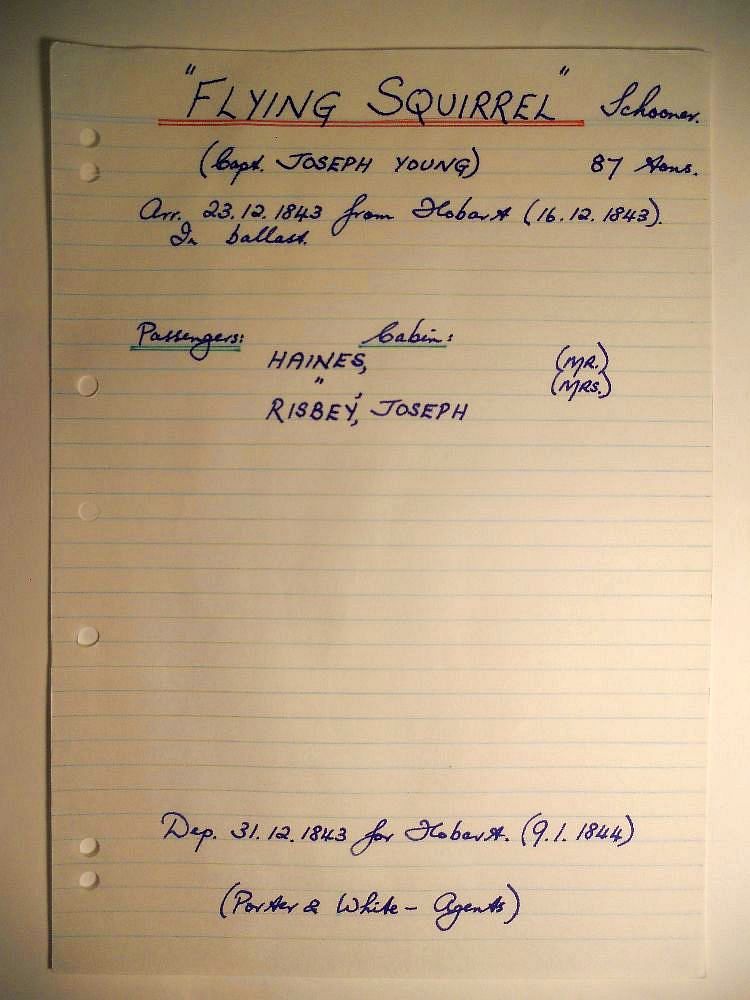 "FLYING SQUIRREL" Schooner.
(Capt. JOSEPH YOUNG) 87 tons.
Arr. 23.12.1843 from Hobart (16.12.1843).
In ballast.
Passengers: Cabin:
HAINES, (MR.)
" , (MRS.)
RISBEY, JOSEPH
Dep. 31.12.1843 for Hobart. (9.1.1844)
(Porter & White - Agents)